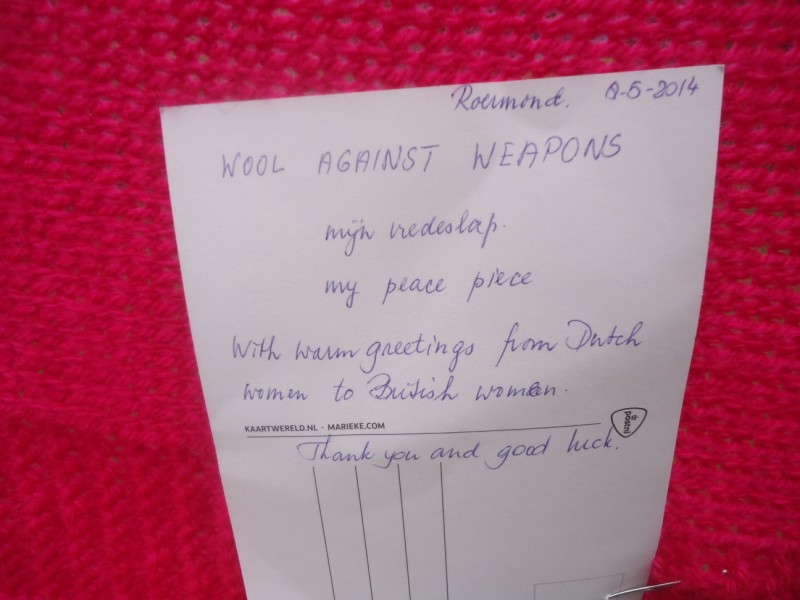 Roermond. 8-5-2014
WOOL AGAINST WEAPONS
mijn vredeslap.
my peace piece
With warm greetings from Dutch
women to British women.
KAARTWERELD.NL - MARIEKE.COM
postnl
Thank you and good luck.